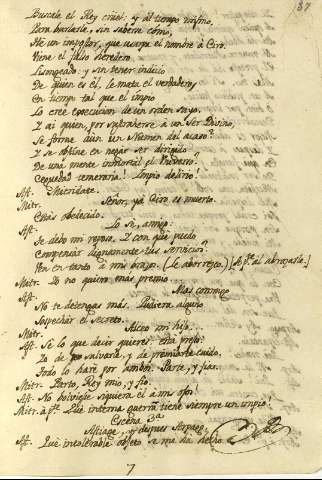 87
Buscale el Rey cruel: y al tiempo mismo,
Para burlarle, sin saberse cómo,
Hé un impostor, que usurpa el nombre à Ciro:
Viene el falso heredero
Lisongeado: y sin tener indicio
De quien es él, le mata el verdadero,
En tiempo tal que el impio
Lo cree execucion de un orden suyo.
Y ai quien, por substraherse à un Ser Divino,
Se forma aun un Numen del acaso?
Y se obstina en negar ser dirigido
De una mente inmortal el Universo?
Ceguedad temeraria! Impio delirio!
Ast. Mitridate.
Mitr. Señor, ya Ciro es muerto.
Estàs obedecido.
Ast. Lo sè, amigo:
Te debo mi reposo. Y con què puedo
Compensar dignamente tus servicios?
Ven en tanto à mis brazos. (Le aborrezco.) [Ap.te al abrazarle.]
Mitr. Yo no quiero mas premio.
Ast. Mas conmigo
No te detengas mas. Pudiera alguno
Sospechar el Secreto.
Mitr. Alceo mi hijo...
Ast. Sè lo que decir quieres: està preso:
Yo de salvarle, y de premiarte cuido.
Todo lo haré por ambos. Parte, y fia.
Mitr. Parto, Rey mio, y fio.
Ast. No bolviesse siquiera él à mis ojos!
Mitr. à p.te Què interna guerra tiene siempre un impio!
Escena 3ª
Astiage, y despues Arpago.
Ast. Què intolerable objeto a mi ha hecho
7